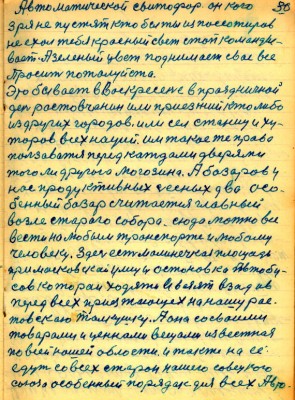 Автоматический свитофор. он кого 30
зря не пустят кто бы ты из посетиров
не ехол тебя красный свет стоп команды-
вает. А зеленый цвет поднимает свае все
просит пожалуйста.
Это бывает в Воскресене в праздничной
ден ростовчанин или приезний кто либо
из других городов. или сел станиц и ху-
торов всех наций. им такае же права
ползоватя перед каждами дверями
того ли другога могозина. А базаров у
нас продуктивных десных два осо-
бенный базар считается главный
возле старага собора. сюда можно все
вести на любым транспорте и любому
человеку. Здес ест машинечкая площадь
примаковская улиц и остоновка Автобу-
сов которая ходять и возят взад ив
перед всех приезжающех на нашу рос-
товскаю Толкучку. А она со своими
товарами и ценнами вещами известная
по всей нашей области. и также на её
едут со всех старон нашего совецкого
союза особенный порядак для всех Авто-